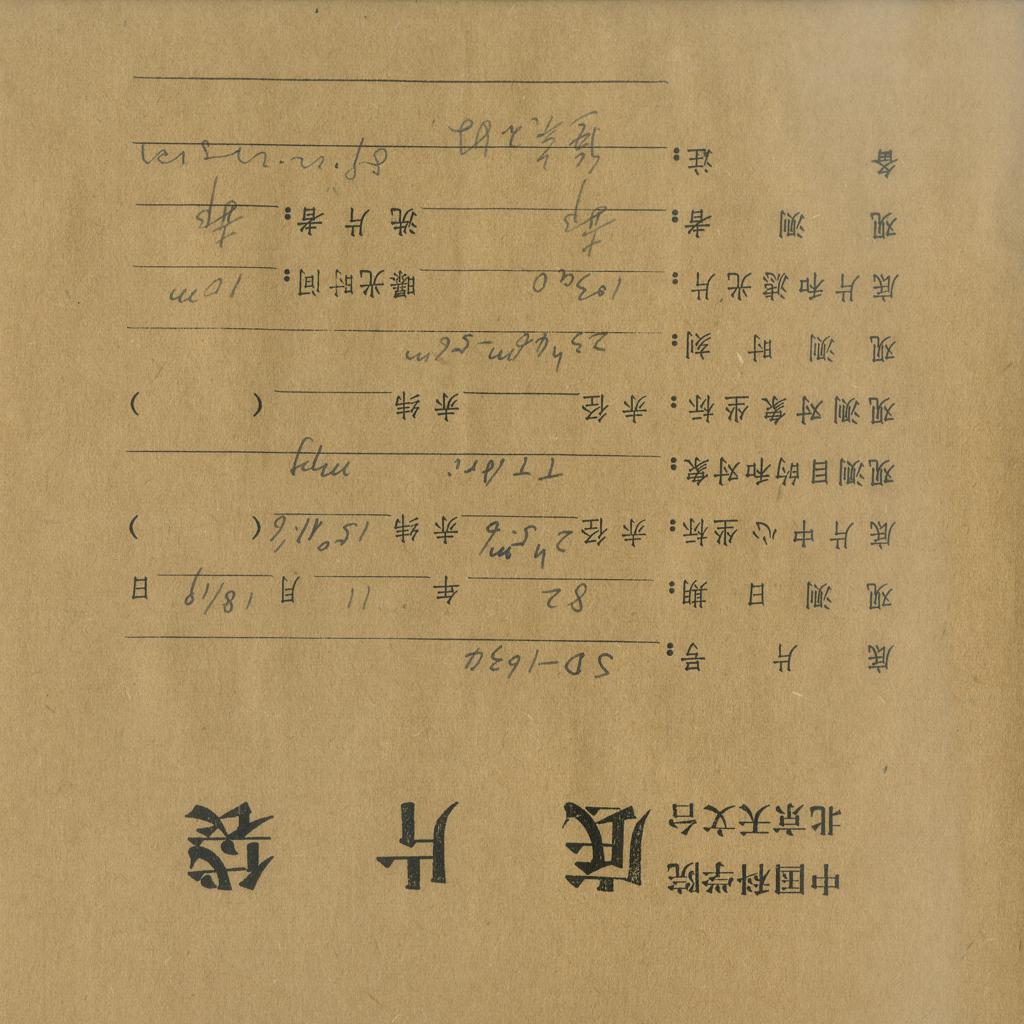 中国科学院
北京天文台 底片袋
底片号: SD-1634
观测日期: 82 年 11 月 18/19 日
底片中心坐标: 赤径 2h5m.6 赤纬 15°11.'6 ( )
观测目的和对象: TT Ari mpg
观测对象坐标: 赤径 赤纬 ( )
观测时刻: 23h46m-56m
底片和滤光片: 103aO 曝光时间: 10m
观测者: 郝 洗片者: 郝
备注: